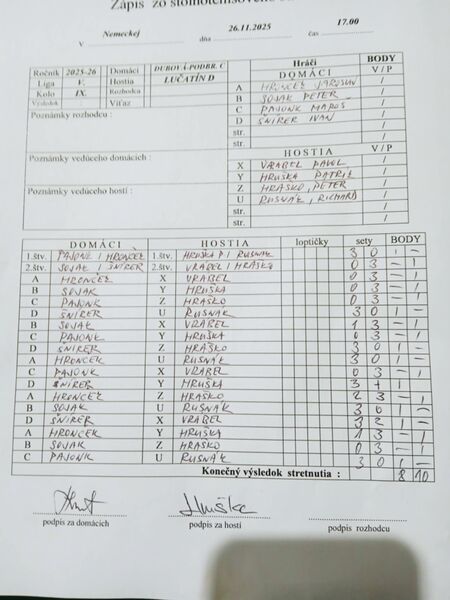 Zápis zo stolnotenisového
V Nemeckej dňa 26.11.2025 čas 17.00
Ročník 2025-26 Domáci DUBOVÁ-PODBR. C
Liga V. Hostia LUČATÍN D
Kolo IX. Rozhodca
Výsledok Víťaz
Poznámky rozhodcu :
Poznámky vedúceho domácich :
Poznámky vedúceho hostí :
Hráči BODY
DOMÁCI V / P
A HRONČEK JAROSLAV /
B SOJAK PETER /
C PAJONK MAROŠ /
D ŠNIRER IVAN /
str. /
str. /
HOSTIA V / P
X VRABEL PAVOL /
Y HRUŠKA PATRIK /
Z HRAŠKO, PETER /
U RUSNÁK, RICHARD /
str. /
str. /
DOMÁCI HOSTIA loptičky sety BODY
1.štv. PAJONK / HRONČEK 1.štv. HRUŠKA P / RUSNAK 3 0 1 -
2.štv. SOJAK / ŠNIRER 2.štv. VRABEL / HRAŠKO 0 3 - 1
A HRONČEK X VRABEL 0 3 - 1
B SOJAK Y HRUŠKA 0 3 - 1
C PAJONK Z HRAŠKO 0 3 - 1
D ŠNIRER U RUSNÁK 3 0 1 -
B SOJAK X VRABEL 1 3 - 1
C PAJONK Y HRUŠKA 0 3 - 1
D ŠNIRER Z HRAŠKO 3 0 1 -
A HRONCEK U RUSNÁK 3 0 1 -
C PAJONK X VRABEL 0 3 - 1
D ŠNIRER Y HRUŠKA 3 1 1
A HRONCEK Z HRAŠKO 2 3 - 1
B SOJAK U RUSNÁK 3 0 1 -
D ŠNIRER X VRABEL 3 2 1 -
A HRONCEK Y HRUŠKA 1 3 - 1
B SOJAK Z HRAŠKO 0 3 - 1
C PAJONK U RUSNÁK 3 0 1 -
Konečný výsledok stretnutia : 8 10
Hruška
podpis za domácich podpis za hostí podpis rozhodcu